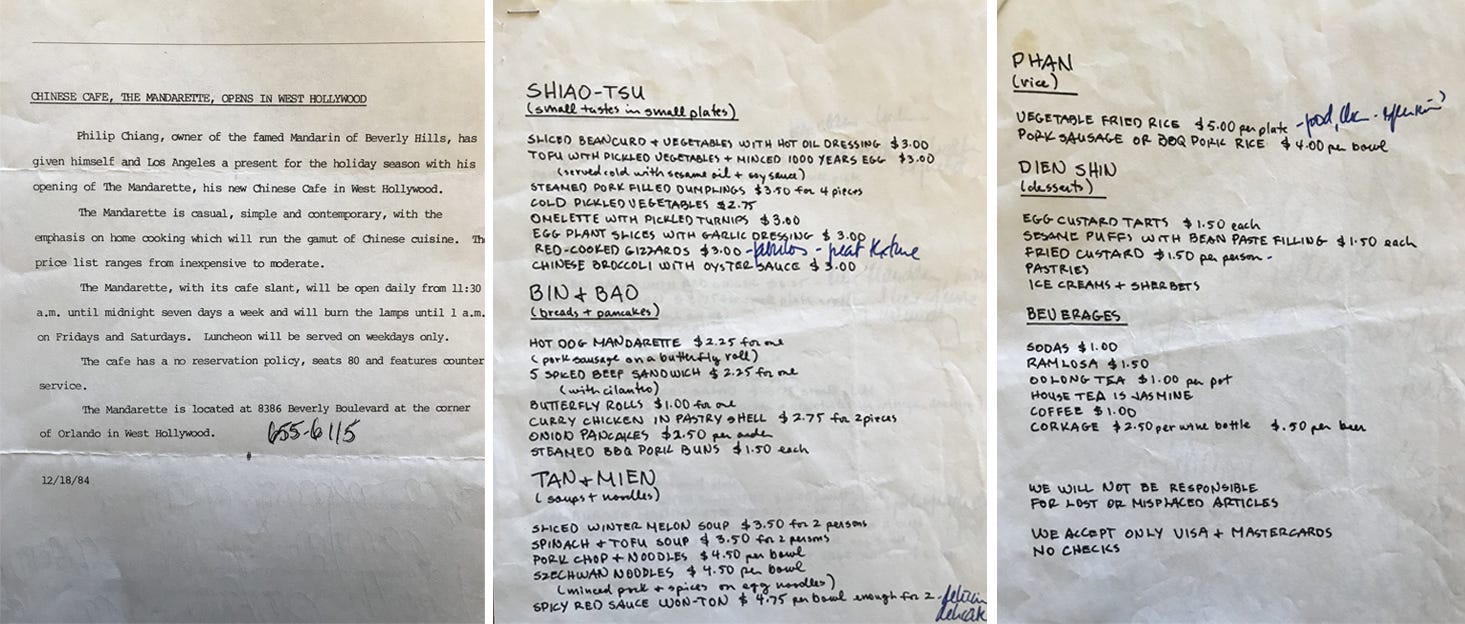 CHINESE CAFE, THE MANDARETTE, OPENS IN WEST HOLLYWOOD
Philip Chiang, owner of the famed Mandarin of Beverly Hills, has
given himself and Los Angeles a present for the holiday season with his
opening of The Mandarette, his new Chinese Cafe in West Hollywood.
The Mandarette is casual, simple and contemporary, with the
emphasis on home cooking which will run the gamut of Chinese cuisine. Th
price list ranges from inexpensive to moderate.
The Mandarette, with its cafe slant, will be open daily from 11:30
a.m. until midnight seven days a week and will burn the lamps until 1 a.m.
on Fridays and Saturdays. Luncheon will be served on weekdays only.
The cafe has a no reservation policy, seats 80 and features counter
service.
The Mandarette is located at 8386 Beverly Boulevard at the corner
of Orlando in West Hollywood. 655-6115
#
12/18/84
SHIAO-TSU
(small tastes in small plates)
SLICED BEANCURD + VEGETABLES WITH HOT OIL DRESSING $3.00
TOFU WITH PICKLED VEGETABLES + MINCED 1000 YEARS EGG $3.00
(served cold with sesame oil + soy sauce)
STEAMED PORK FILLED DUMPLINGS $3.50 for 4 pieces
COLD PICKLED VEGETABLES $2.75
OMELETTE WITH PICKLED TURNIPS $3.00
EGG PLANT SLICES WITH GARLIC DRESSING $3.00
RED-COOKED GIZZARDS $3.00 - - texture
CHINESE BROCCOLI WITH OYSTER SAUCE $3.00
BIN + BAO
(breads + pancakes)
HOT DOG MANDARETTE $2.25 for one
(pork sausage on a butterfly roll)
5 SPICED BEEF SANDWICH $2.25 for one
(with cilantro)
BUTTERFLY ROLLS $1.00 for one
CURRY CHICKEN IN PASTRY SHELL $2.75 for 2 pieces
ONION PANCAKES $2.50 per order
STEAMED BBQ PORK BUNS $1.50 each
TAN + MIEN
(soups + noodles)
SLICED WINTER MELON SOUP $3.50 for 2 persons
SPINACH + TOFU SOUP $3.50 for 2 persons
PORK CHOP + NOODLES $4.50 per bowl
SZECHWAN NOODLES $4.50 per bowl
(minced pork + spices on egg noodles)
SPICY RED SAUCE WON-TON $4.75 per bowl enough for 2
PHAN
(rice)
VEGETABLE FRIED RICE $5.00 per plate - good,
PORK SAUSAGE OR BBQ PORK RICE $4.00 per bowl
DIEN SHIN
(desserts)
EGG CUSTARD TARTS $1.50 each
SESAME PUFFS WITH BEAN PASTE FILLING $1.50 each
FRIED CUSTARD $1.50 per person -
PASTRIES
ICE CREAMS + SHERBETS
BEVERAGES
SODAS $1.00
RAMLOSA $1.50
OOLONG TEA $1.00 per pot
HOUSE TEA IS JASMINE
COFFEE $1.00
CORKAGE $2.50 per wine bottle $.50 per beer
WE WILL NOT BE RESPONSIBLE
FOR LOST OR MISPLACED ARTICLES
WE ACCEPT ONLY VISA + MASTERCARDS
NO CHECKS